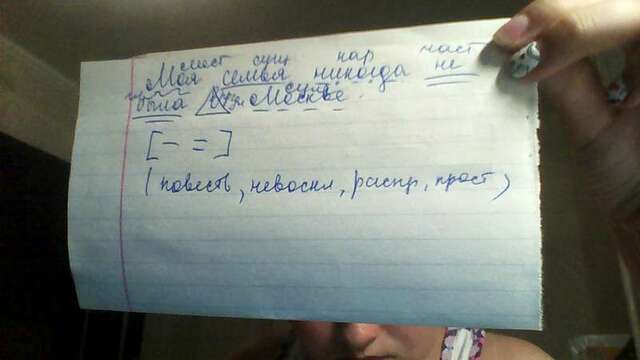 мест сущ нар част
Моя семья никогда не
сущ
была в Москве.
[– =]
(повеств, невоскл, распр, прост)